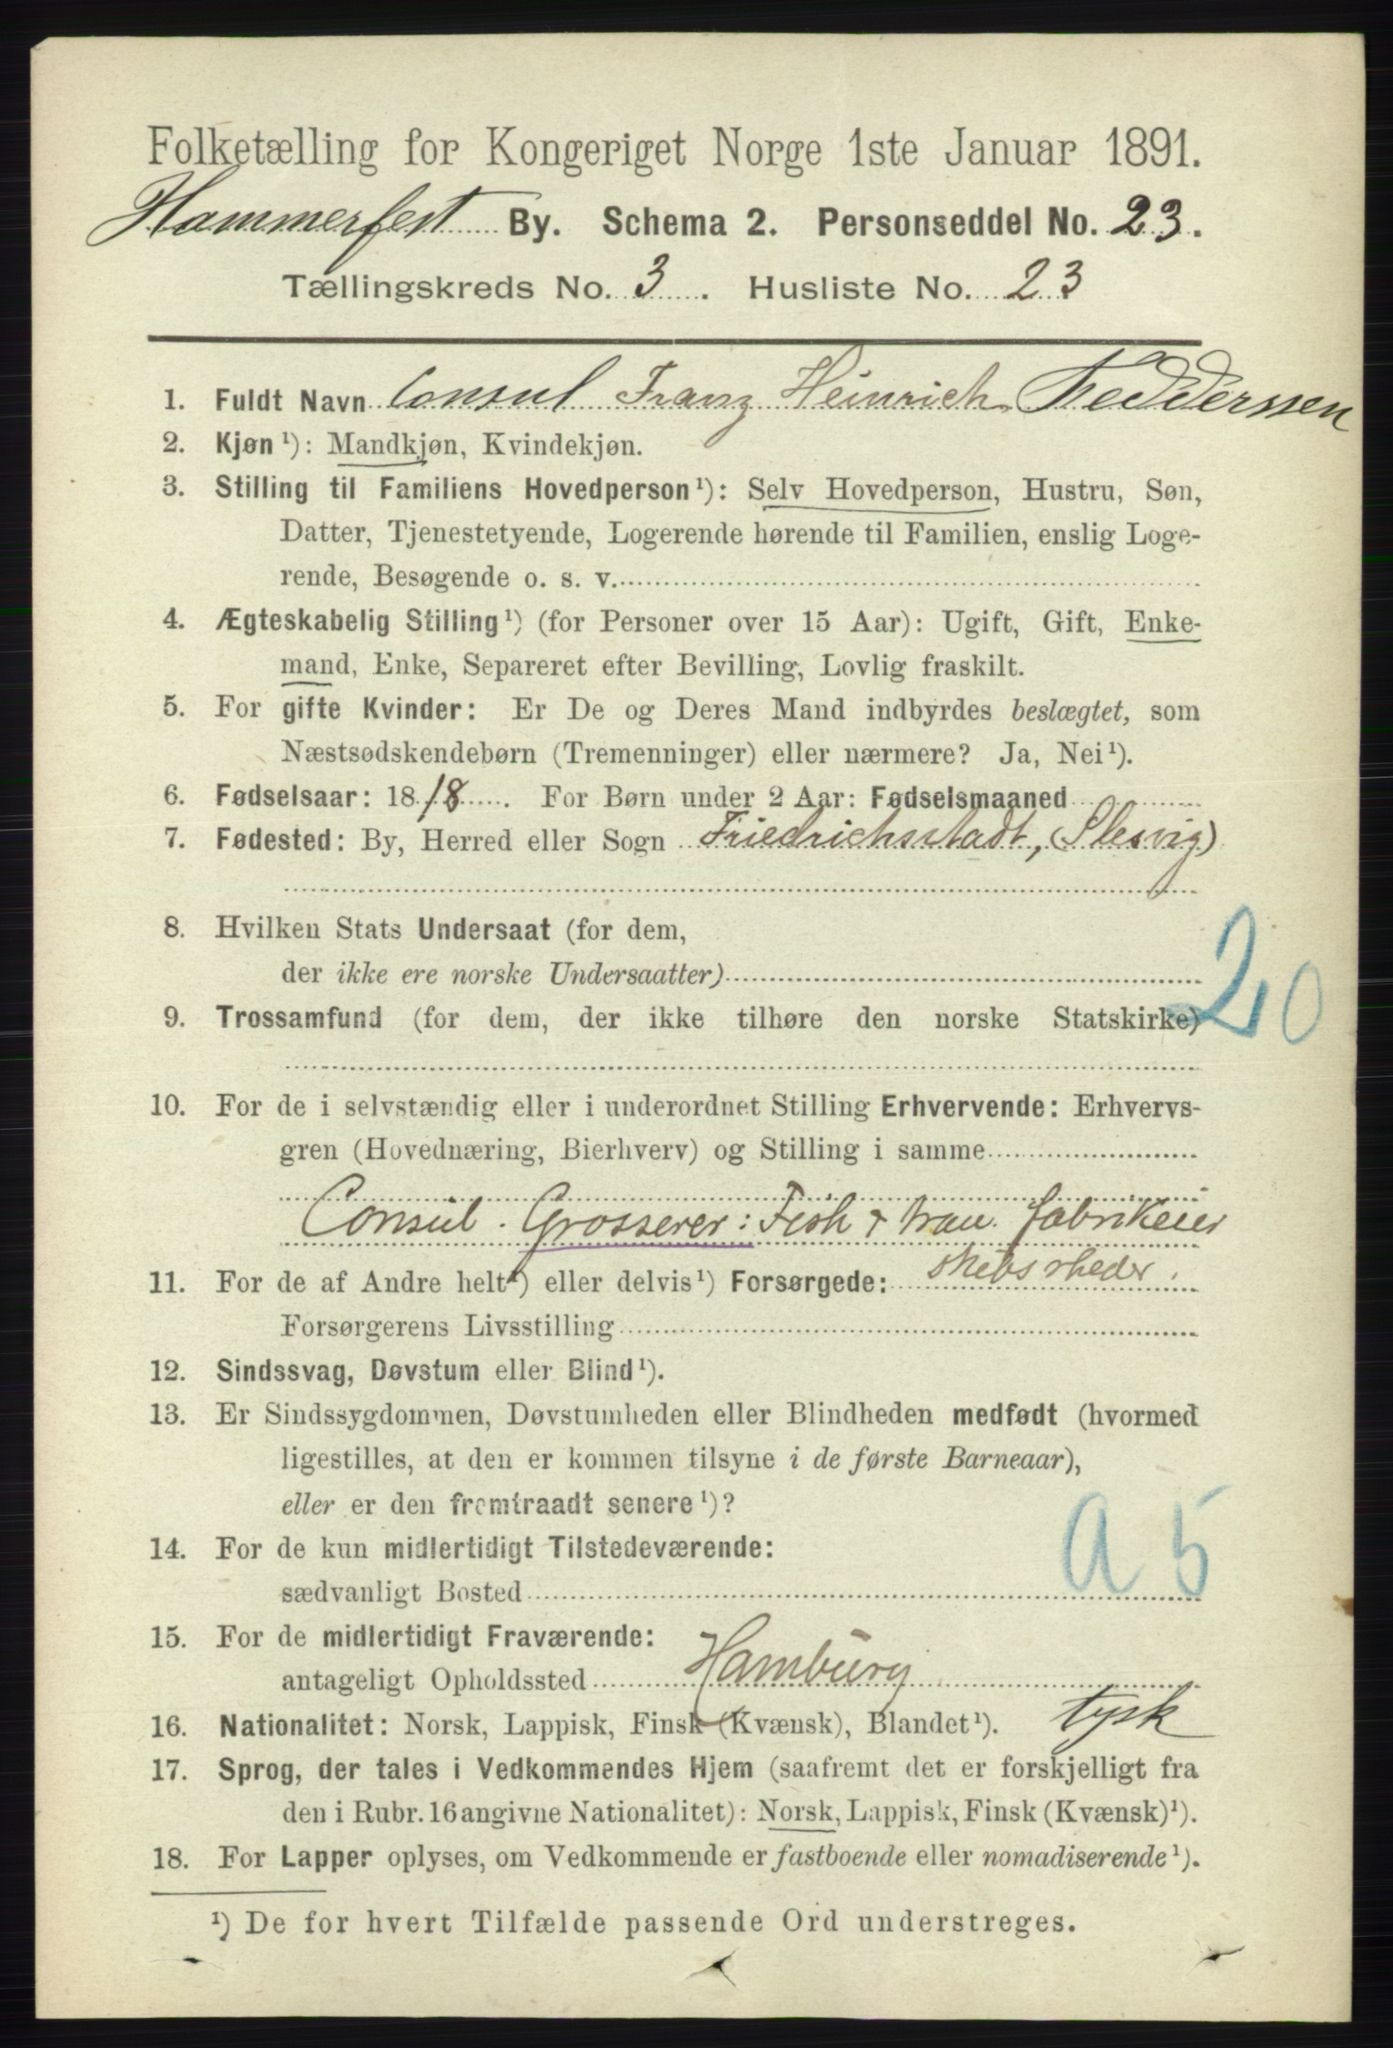 Folketælling for Kongeriget Norge 1ste Januar 1891.
Hammerfest By. Schema 2. Personseddel No. 23.
Tællingskreds No. 3. Husliste No. 23
1. Fuldt Navn Consul Franz Heinrich Feddersen
2. Kjøn ¹): Mandkjøn, Kvindekjøn.
3. Stilling til Familiens Hovedperson ¹): Selv Hovedperson, Hustru, Søn,
Datter, Tjenestetyende, Logerende hørende til Familien, enslig Loge-
rende, Besøgende o. s. v.
4. Ægteskabelig Stilling ¹) (for Personer over 15 Aar): Ugift, Gift, Enke-
mand, Enke, Separeret efter Bevilling, Lovlig fraskilt.
5. For gifte Kvinder: Er De og Deres Mand indbyrdes beslægtet, som
Næstsødskendebørn (Tremenninger) eller nærmere? Ja, Nei ¹).
6. Fødselsaar: 1818. For Børn under 2 Aar: Fødselsmaaned
7. Fødested: By, Herred eller Sogn Friedrichsstadt, (Slesvig)
8. Hvilken Stats Undersaat (for dem,
der ikke ere norske Undersaatter)
20
9. Trossamfund (for dem, der ikke tilhøre den norske Statskirke)
10. For de i selvstændig eller i underordnet Stilling Erhvervende: Erhvervs-
gren (Hovednæring, Bierhverv) og Stilling i samme
Consul. Grosserer: Fish & tran. fabrikeier
skibsrheder.
11. For de af Andre helt ¹) eller delvis ¹) Forsørgede:
Forsørgerens Livsstilling
12. Sindssvag, Døvstum eller Blind ¹).
13. Er Sindssygdommen, Døvstumheden eller Blindheden medfødt (hvormed
ligestilles, at den er kommen tilsyne i de første Barneaar),
eller er den fremtraadt senere ¹)?
a 5
14. For de kun midlertidigt Tilstedeværende:
sædvanligt Bosted
15. For de midlertidigt Fraværende:
antageligt Opholdssted Hamburg
16. Nationalitet: Norsk, Lappisk, Finsk (Kvænsk), Blandet ¹). tysk
17. Sprog, der tales i Vedkommendes Hjem (saafremt det er forskjelligt fra
den i Rubr. 16 angivne Nationalitet): Norsk, Lappisk, Finsk (Kvænsk) ¹).
18. For Lapper oplyses, om Vedkommende er fastboende eller nomadiserende ¹).
¹) De for hvert Tilfælde passende Ord understreges.